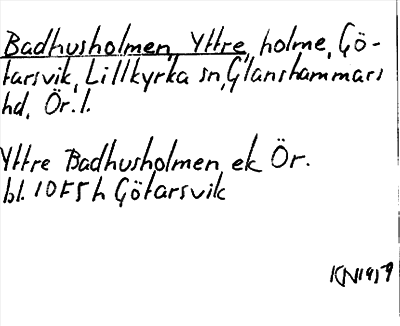 Badhusholmen, Yttre, holme, Gö-
tarsvik, Lillkyrka sn, Glanshammars
hd, Ör. l.
Yttre Badhusholmen, ek Ör.
bl. 10F5h Götarsvik
KN 1959